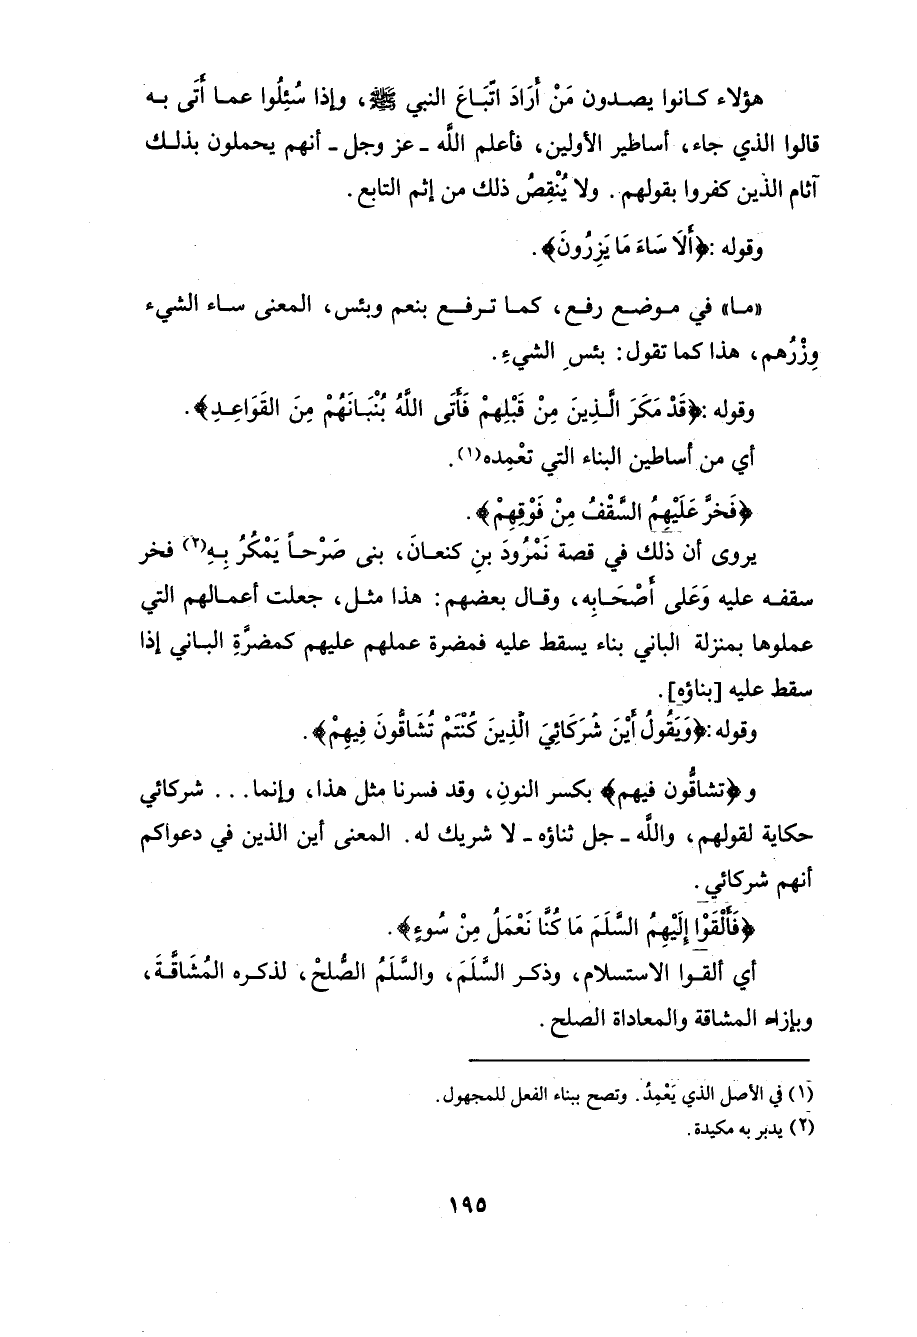 هؤلاء كانوا يصدون مَنْ أَرَادَ اتِّبَاعَ النبي ﷺ، وإذا سُئِلُوا عما أَتَى به
قالوا الذي جاء، أساطير الأولين، فأعلم اللَّه ـ عز وجل ـ أنهم يحملون بذلك
آثام الذين كفروا بقولهم. ولا يُنْقِصُ ذلك من إثم التابع.
وقوله: ﴿أَلَا سَاءَ مَا يَزِرُونَ﴾.
«ما» في موضع رفع، كما ترفع بنعم وبئس، المعنى ساء الشيء
وِزْرُهم، هذا كما تقول: بئس الشيءِ.
وقوله: ﴿قَدْ مَكَرَ الَّذِينَ مِنْ قَبْلِهِمْ فَأَتَى اللَّهُ بُنْبَانَهُمْ مِنَ القَوَاعِدِ﴾.
أي من أساطين البناء التي تعْمِده(١).
﴿فَخرَّ عَلَيْهِمُ السَّقْفُ مِنْ فَوْقِهِمْ﴾.
يروى أن ذلك في قصة نَمْرُودَ بنِ كنعانَ، بنى صَرْحاً يَمْكُرُ بِهِ(٢) فخر
سقفه عليه وَعَلى أَصْحَابِه، وقال بعضهم: هذا مثل، جعلت أعمالهم التي
عملوها بمنزلة الباني بناء يسقط عليه فمضرة عملهم عليهم كمضرَّةِ الباني إذا
سقط عليه [بناؤه].
وقوله: ﴿وَيَقُولُ أَيْنَ شُرَكَائِيَ الَّذِينَ كُنْتَمْ تُشَاقُّونَ فِيهِمْ﴾.
و﴿تشاقُّون فيهم﴾ بكسر النونِ، وقد فسرنا مثل هذا، وإنما... شركائي
حكاية لقولهم، واللَّه ـ جل ثناؤه ـ لا شريك له. المعنى أين الذين في دعواكم
أنهم شركائي.
﴿فَأَلْقَوْا إِلَيْهِمُ السَّلَمَ مَا كُنَّا نَعْمَلُ مِنْ سُوءٍ﴾.
أي ألقوا الاستسلام، وذكر السَّلَمَ، والسَّلَمُ الصُّلحْ، لذكره المُشَاقَّةَ،
وبإزاء المشاقة والمعاداة الصلح.
(١) في الأصل الذي يَعْمِدُ. وتصح ببناء الفعل للمجهول.
(٢) يدبر به مكيدة.
١٩٥